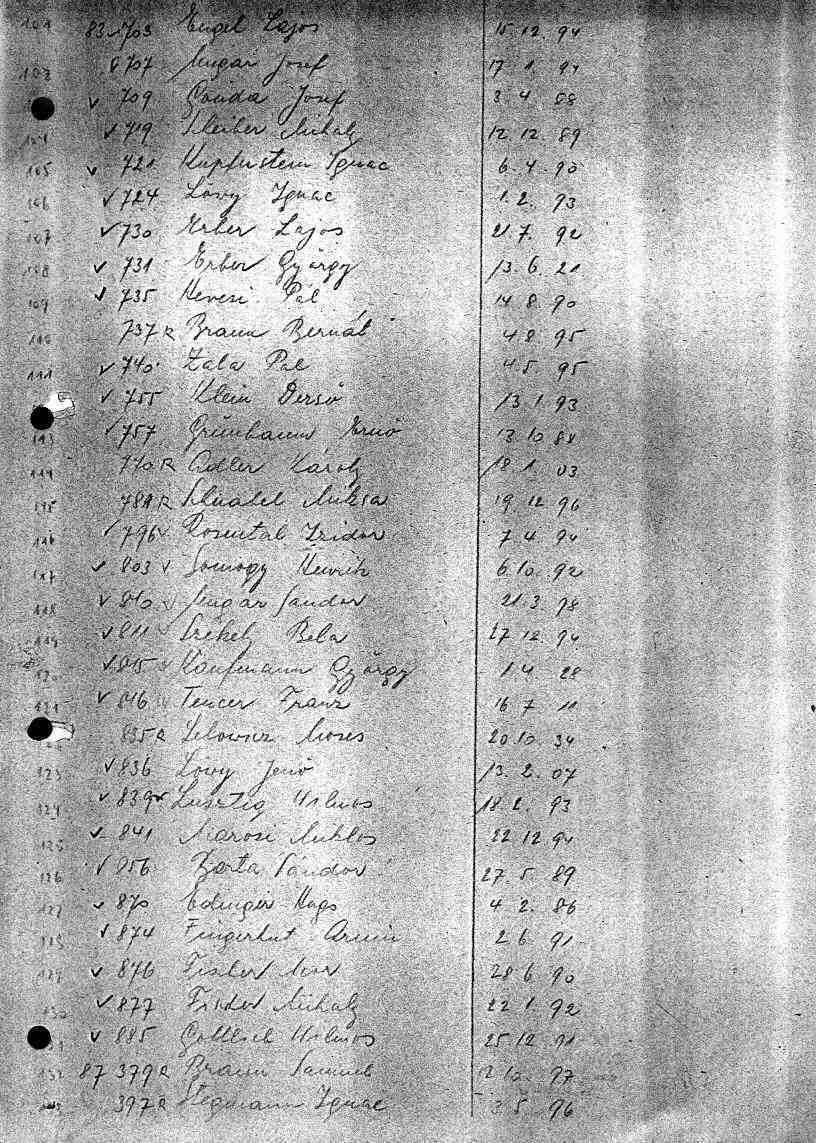 101 83 703 Engel Lajos 15 12. 94
102 ✓ 707 Ungar Josef 17 1. 94
✓ 709 Gonda Josef 3 4 88
104 ✓ 719 Mihaly 12. 12. 89
105 ✓ 721 Kupferstein Ignac 6. 4. 90
106 ✓ 724 Lövy Ignac 1. 2. 93
107 ✓ 730 Erber Lajos 21 7. 92
108 ✓ 731 Erber György 13. 6. 21
109 ✓ 735 Hevesi Pál 14 8. 90
110 737 R Braun Bernát 4 8. 95
111 ✓ 740 Zala Pal 4 5. 95
✓ 755 Klein Dersö 13. 1. 93
113 ✓ 757 Grünbaum Ernö 13 10 88
114 770 R Adler Károly 18 1. 03
115 788 R Miksa 19. 12 96
116 ✓ 796 ✓ Rosental Izidor 7 4. 94
117 ✓ 803 ✓ Somogy Henrik 6. 10. 92
118 ✓ 810 ✓ Ungar Sandor 21. 3. 98
119 ✓ 811 ✓ Székely Bela 27 12. 94
120 ✓ 815 ✓ Kaufmann György 1 4 28
121 ✓ 816 Tencer Franz 16 7 11
122 835 R Lebowicz Moses 20. 10. 34
123 ✓ 836 Lövy Jenö 13. 2. 07
124 ✓ 839 Lusztig Vilmos 18. 2. 93
125 ✓ 841 Marosi Miklos 22 12 94
126 ✓ 856 Barta Sándor 27. 5 89
127 ✓ 870 Edinger 4 2. 86
128 ✓ 874 Fingerhut Armin 2 6. 91
129 ✓ 876 Fischer Mor 28 6. 90
130 ✓ 877 Mihaly 22 1. 92
131 ✓ 885 Gottlieb Vilmos 25 12. 91
132 87 379 R Braun Samuel 2 12. 97
133 397 R Stegmann Ignac 3 5 96